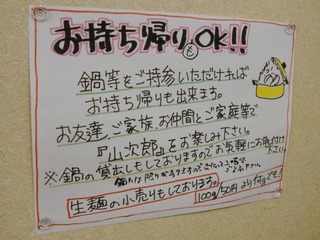 お持ち帰りもOK!!
鍋等をご持参いただければ
お持ち帰りも出来ます。
お友達、ご家族、お仲間とご家庭等で
『山次郎』をお楽しみ下さい。
※鍋の貸出しもしておりますのでお気軽にお声付け
下さい
生麺の小売りもしております。
100g/50円より何gでも!